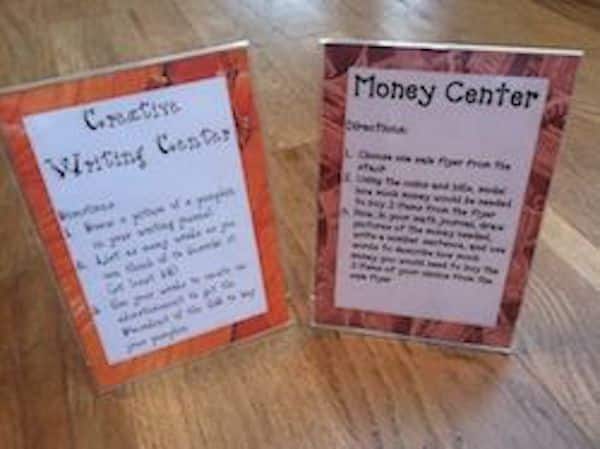 Creative
Writing Center
Directions:
1. Draw a picture of a pumpkin
in your writing journal.
2. List as many words as you
can think of to describe it
(at least 10)
3. Use your words to create an
advertisement to get the
of the to buy
your pumpkin.
Money Center
Directions:
1. Choose one sale flyer from the
stack
2. Using the coins and bills, model
how much money would be needed
to buy 2 items from the flyer
3. Now, in your math journal, draw
pictures of the money needed,
write a number sentence, and use
words to describe how much
money you would need to buy the
2 items of your choice from the
sale flyer